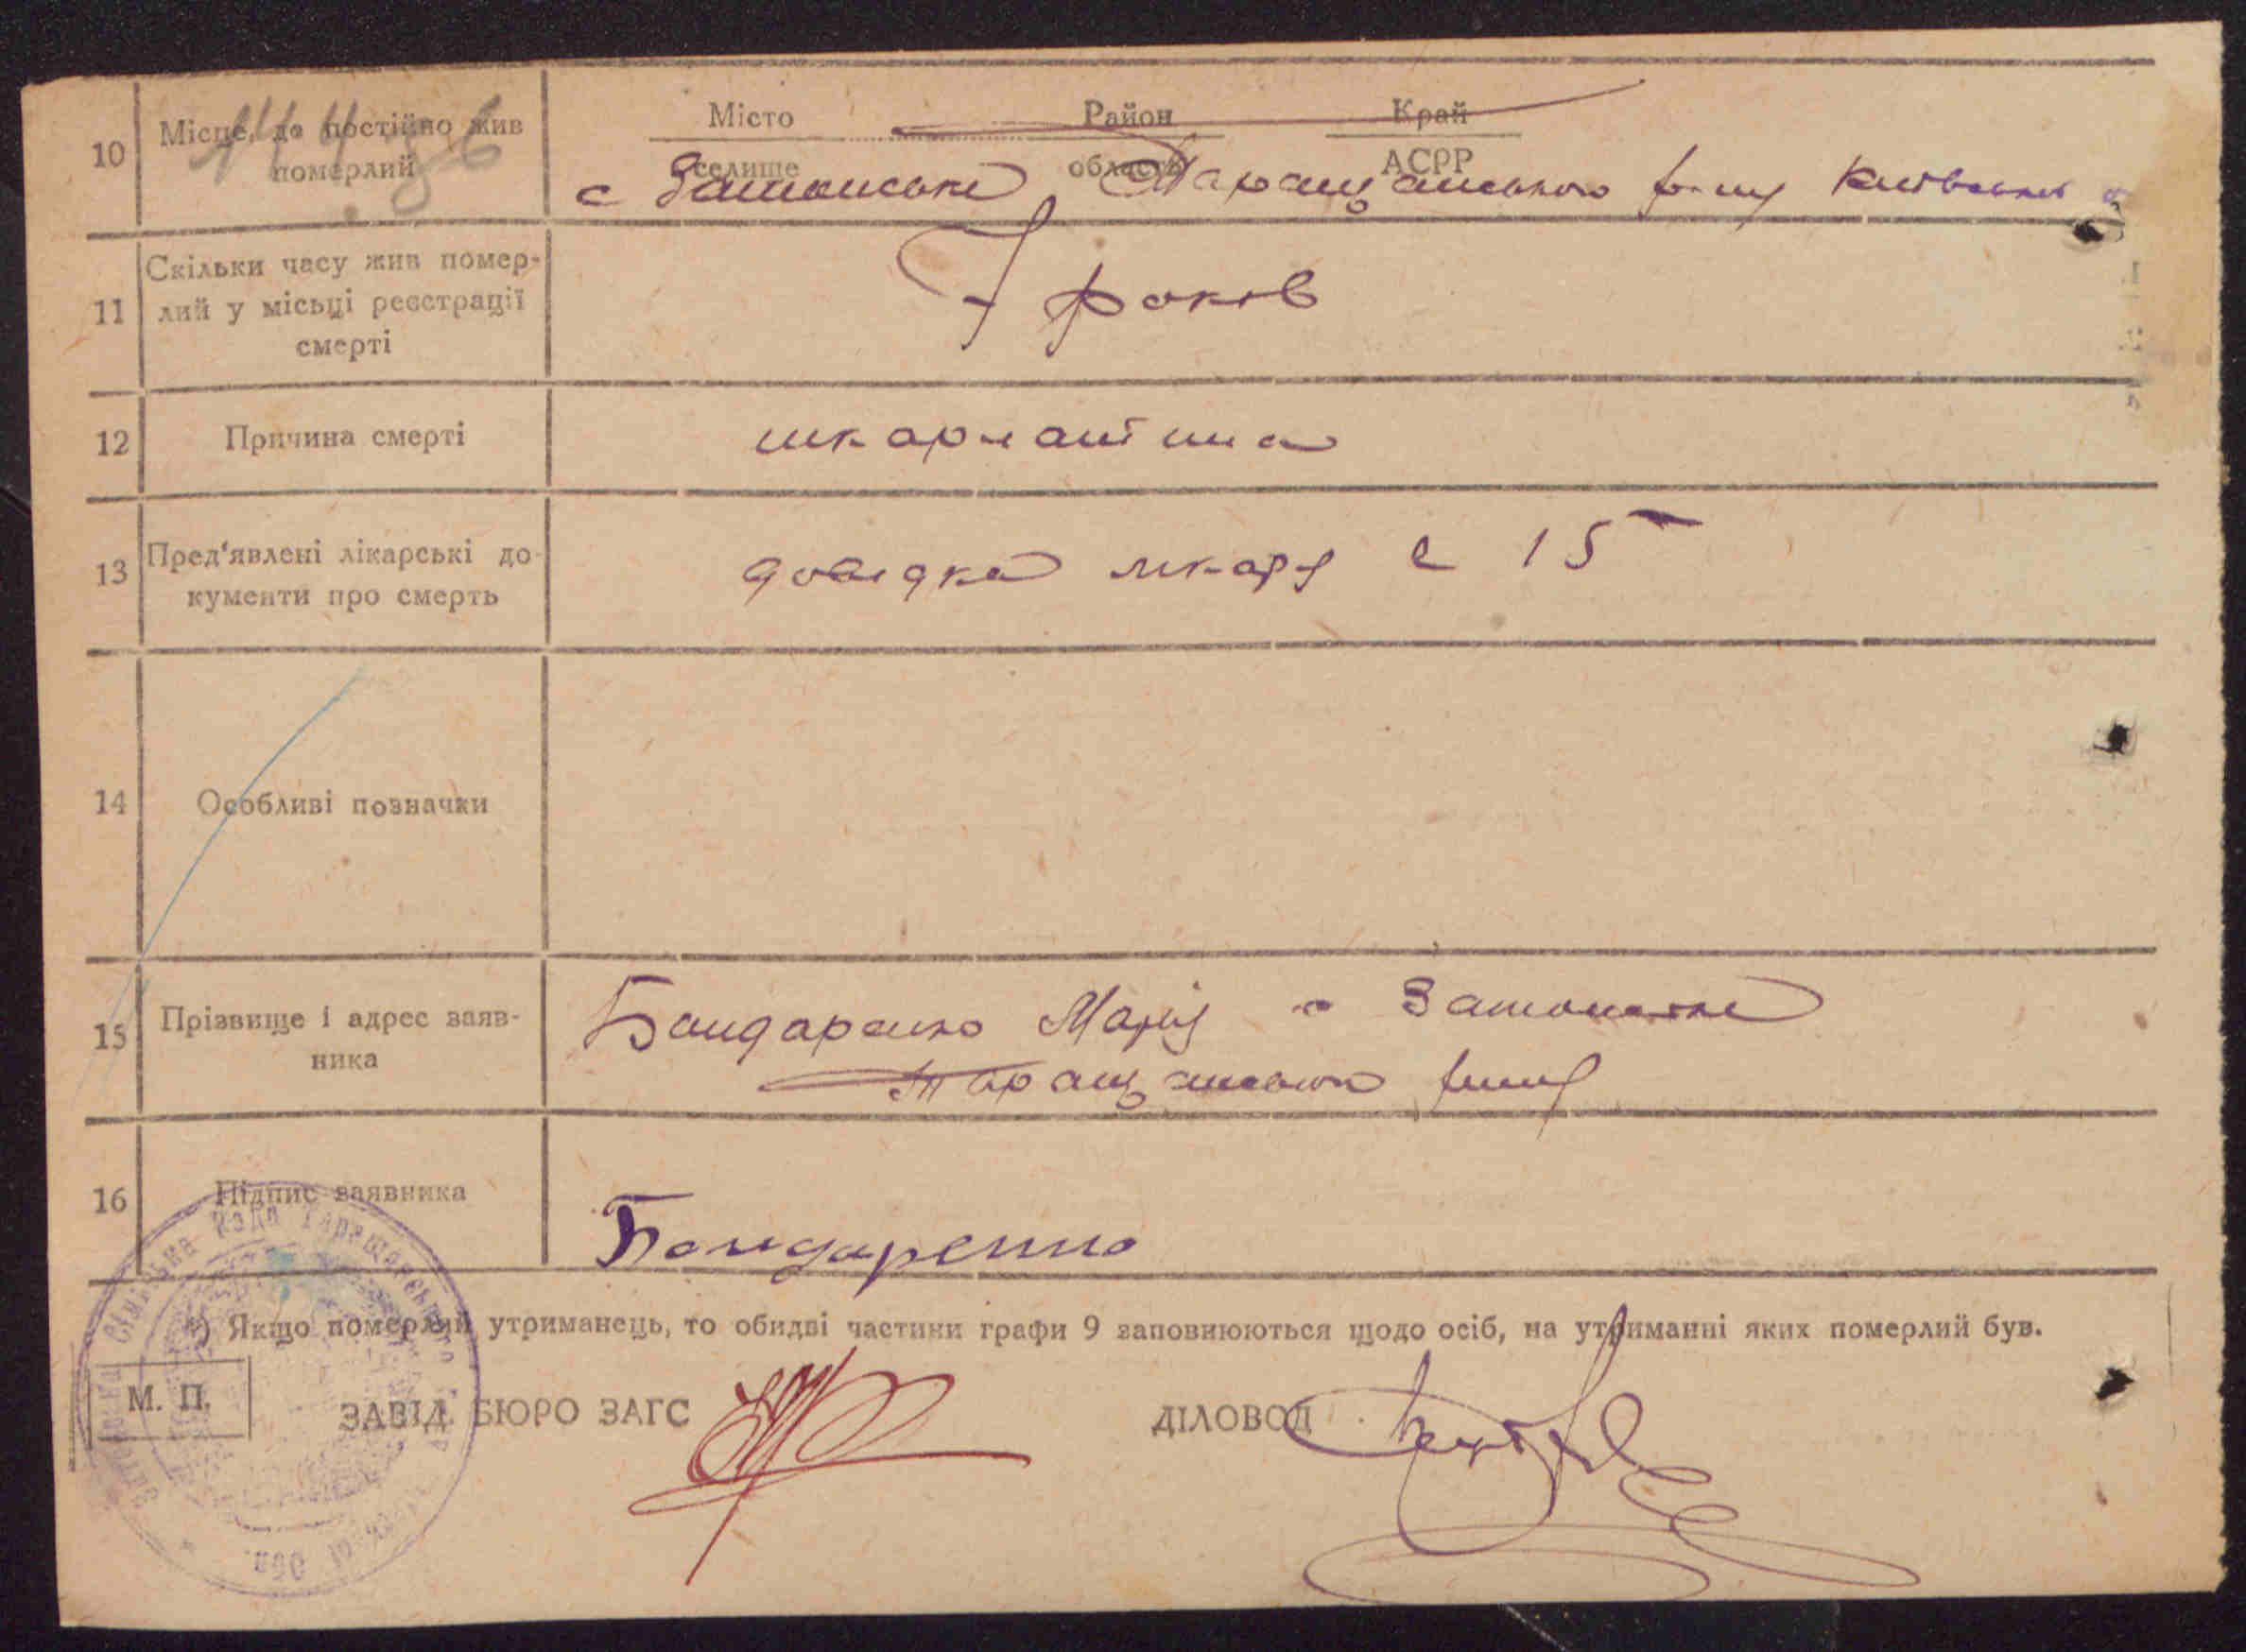 10
Місце, де постійно жив
померлий
Місто Район Край
селище область АСРР
с Затонське Таращанського р-ну Київської
11
Скільки часу жив помер-
лий у місьці реєстрації
смерті
7 років
12
Причина смерті
шкарлатина
13
Пред'явлені лікарські до-
кументи про смерть
довідка лікаря с 15
14
Особливі позначки
15
Прізвище і адрес заяв-
ника
Бондаренко Марія с Затонське
Таращанського р-ну
16
Підпис заявника
Бондаренко
*) Якщо померлий утриманець, то обидві частини графи 9 заповнюються щодо осіб, на утриманні яких померлий був.
М. П.
ЗАВІД. БЮРО ЗАГС
ДІЛОВОД
Сільська Рада Таращанського
обл.